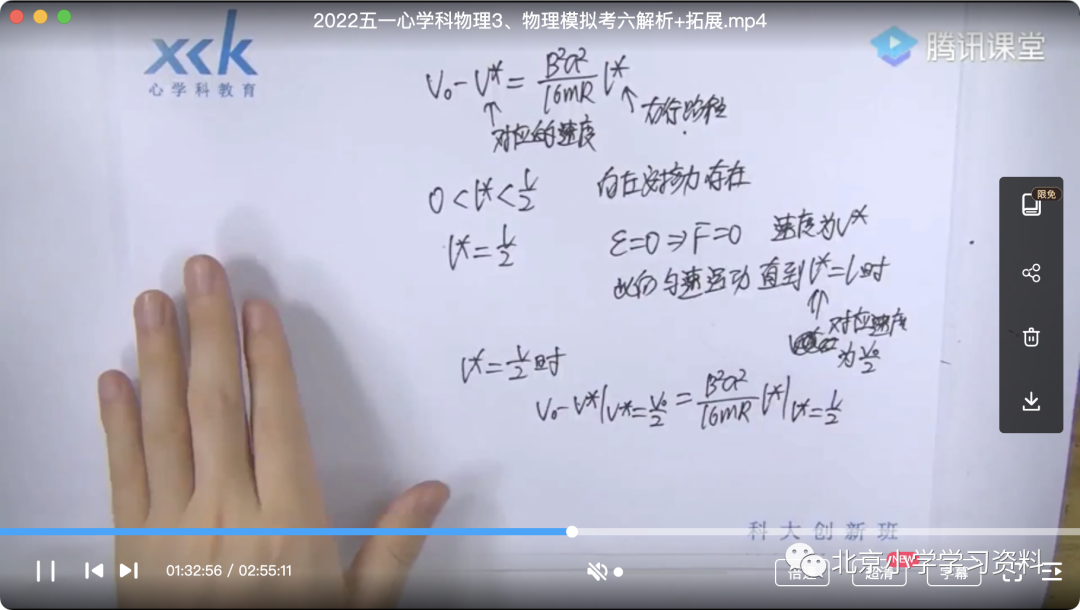 2022五一心学科物理3、物理模拟考六解析+拓展.mp4
xck
心学科教育
腾讯课堂
V₀-V*=B²a²/16mR l*
对应的速度
右行路程
0<l*<l/2 向左安培力存在
l*=l/2 ε=0⇒F=0 速度为V*
此后匀速运动直到l*=l时
对应速度
为V₀/2
l*=l/2时
V₀-V*|V*=V₀/2=B²a²/16mR l*|l*=l/2
限免
科大创新班
北京小学学习资料
01:32:56 / 02:55:11
倍速 超清 NEW 字幕